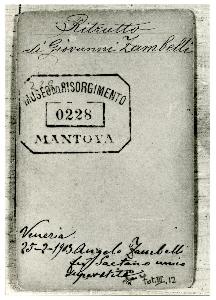 Ritratto
di Giovanni Zambelli
MUSEO DEL RISORGIMENTO
0228
MANTOVA
Venezia
25-2-1913 Angelo Zambelli
fu Gaetano unico
superstite
Fot. III, 12